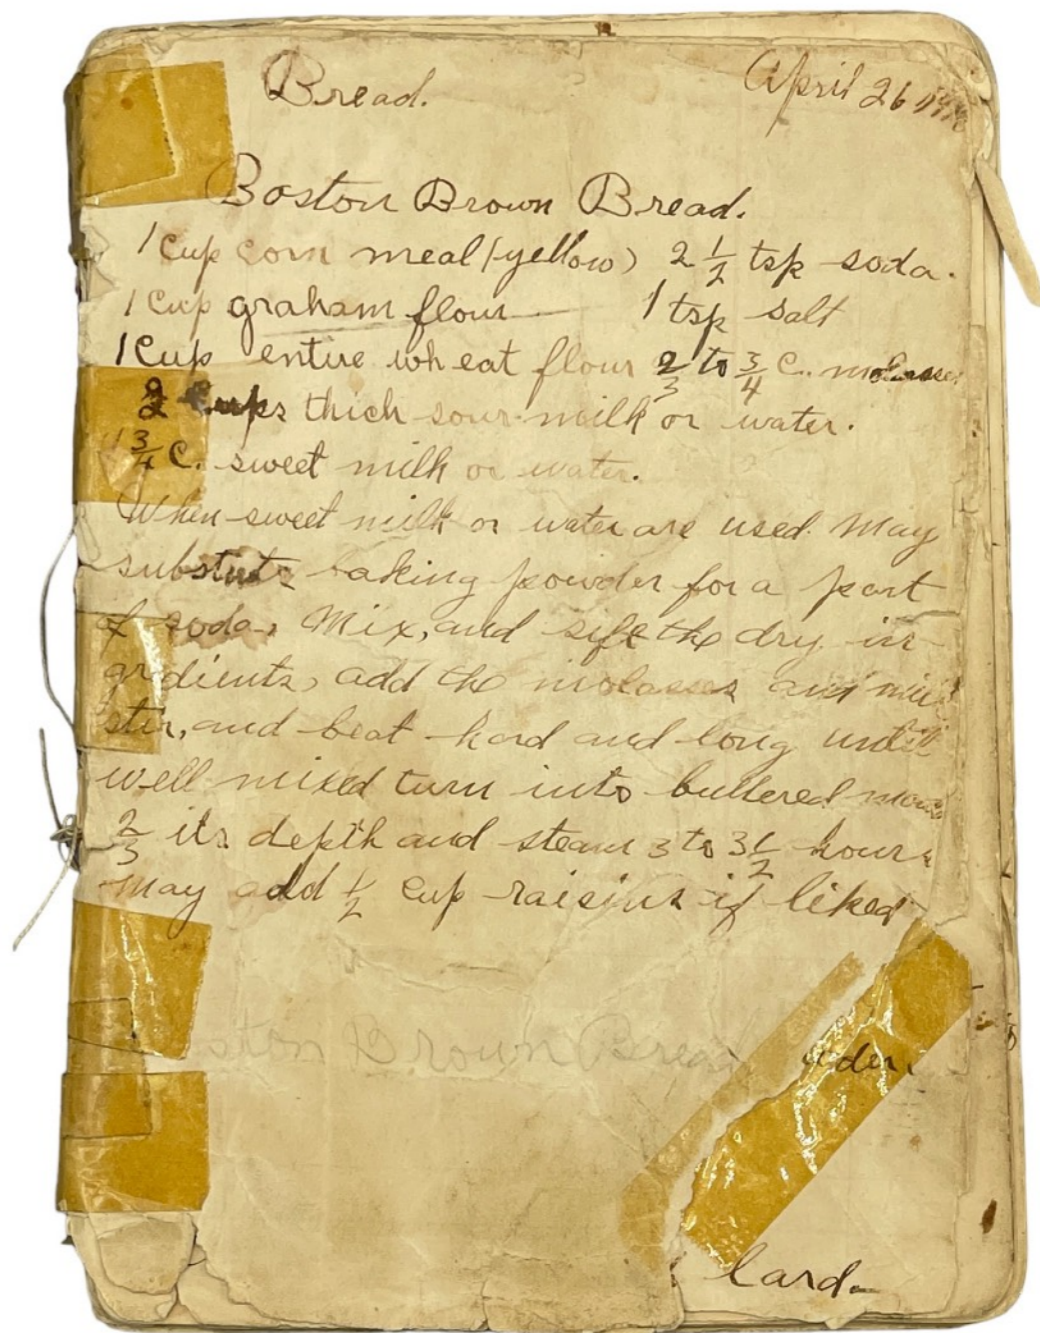 Bread. April 26
Boston Brown Bread.
1 Cup corn meal (yellow) 2 1/2 tsp soda.
1 Cup graham flour 1 tsp salt
1 Cup entire wheat flour 2/3 to 3/4 C. molasses
2 Cups thich sour milk or water.
1 3/4 C. sweet milk or water.
When sweet milk or water are used May
substute baking powder for a part
of soda, Mix, and sift the dry in-
gredients, add the molasses and
stir, and beat hard and long until
well mixed turn into buttered
2/3 its depth and steam 3 to 3 1/2 hours
May add 1/2 cup raisins if liked
ston Brown Bread
lard